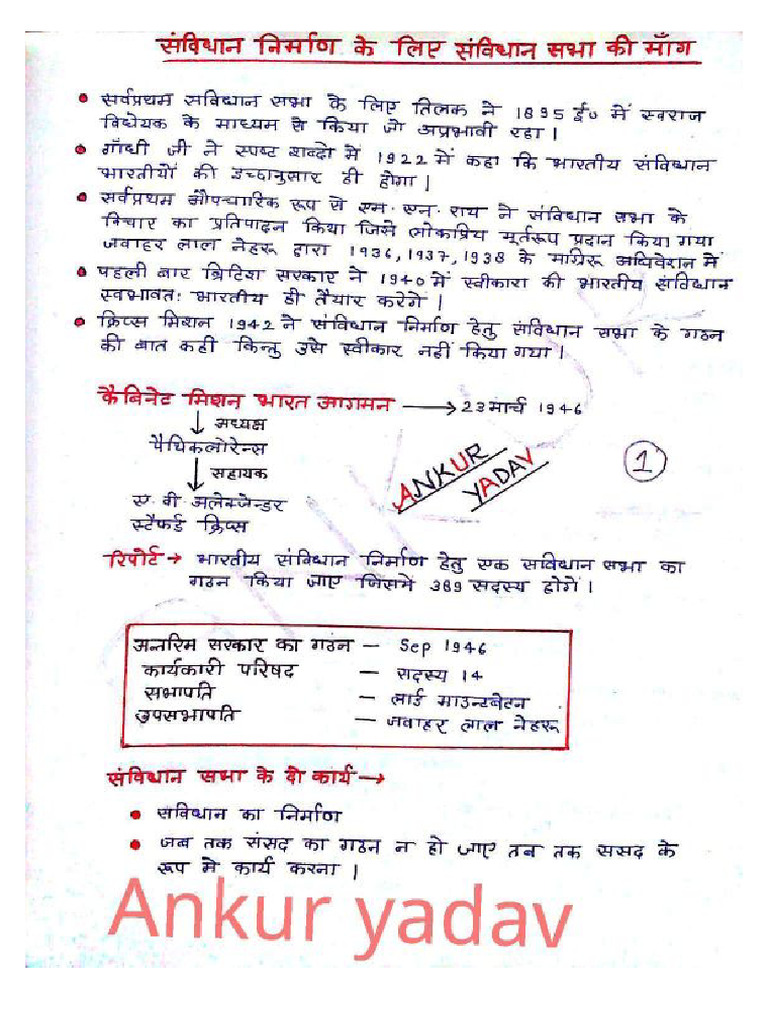 संविधान निर्माण के लिए संविधान सभा की माँग
• सर्वप्रथम सविधान सभा के लिए तिलक ने 1895 ई० में स्वराज
विधेयक के माध्यम से किया जो अप्रभावी रहा।
• गाँधी जी ने स्पष्ट शब्दो में 1922 में कहा कि भारतीय संविधान
भारतीयों की इच्छानुसार ही होगा।
• सर्वप्रथम औपचारिक रूप से एम. एन. राय ने संविधान सभा के
विचार का प्रतिपादन किया जिसे लोकप्रिय मूर्तरूप प्रदान किया गया
जवाहर लाल नेहरू द्वारा 1936, 1937, 1938 के अधिवेशन में
• पहली बार ब्रिटिश सरकार ने 1940 में स्वीकारा की भारतीय संविधान
स्वभावतः भारतीय ही तैयार करेगें।
• क्रिप्स मिशन 1942 ने संविधान निर्माण हेतु संविधान सभा के गठन
की बात कही किन्तु उसे स्वीकार नहीं किया गया।
कैबिनेट मिशन भारत आगमन → 23 मार्च 1946
↓ अध्यक्ष
पैथिकलोरेन्स
↓ सहायक
ए. वी. अलेक्जेन्डर
स्टैफर्ड क्रिप्स
ANKUR
YADAV
1
रिपोर्ट → भारतीय संविधान निर्माण हेतु एक सविधान सभा का
गठन किया जाए जिसमे 389 सदस्य होगें।
अन्तरिम सरकार का गठन — Sep 1946
कार्यकारी परिषद — सदस्य 14
सभापति — लार्ड माउन्टबेटन
उपसभापति — जवाहर लाल नेहरू
संविधान सभा के दो कार्य →
• सविधान का निर्माण
• जब तक संसद का गठन न हो जाए तब तक ससद के
रूप मे कार्य करना।
Ankur yadav